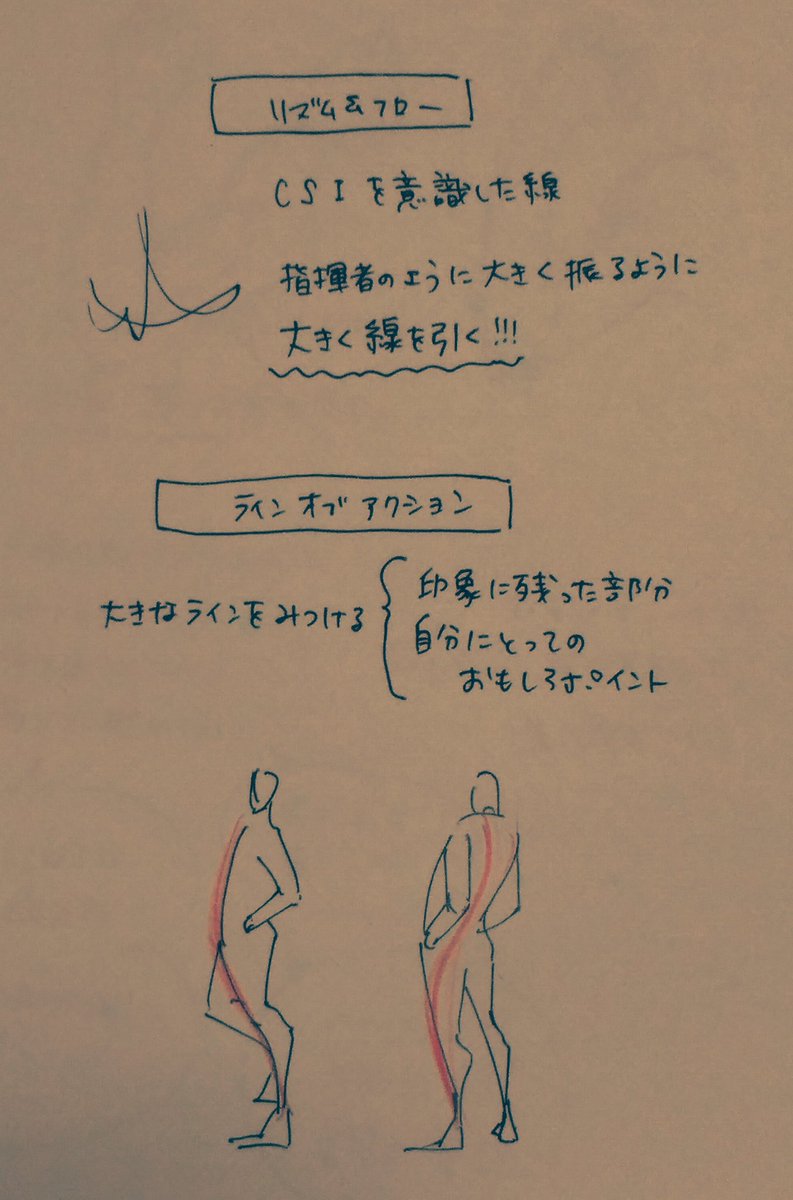 リズム&フロー
CSIを意識した線
指揮者のように大きく振るように
大きく線を引く!!!
ラインオブアクション
大きなラインをみつける
印象に残った部分
自分にとっての
おもしろポイント